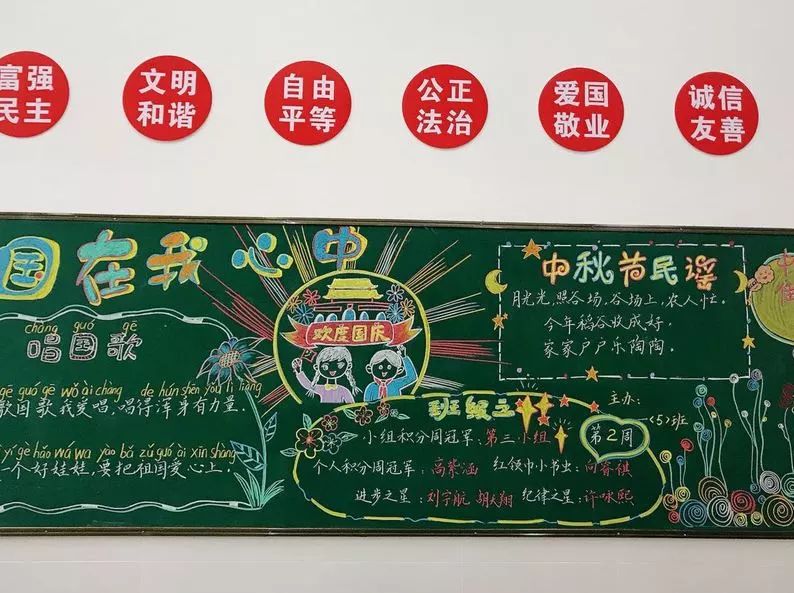 富强
民主
文明
和谐
自由
平等
公正
法治
爱国
敬业
诚信
友善
国在我心中
chàng guó gē
唱国歌
gē guó gē wǒ ài chàng de hún shēn yǒu lì liàng
歌国歌我爱唱,唱得浑身有力量.
yí gè hǎo wá wa yào bǎ zǔ guó ài xīn shàng
一个好娃娃,要把祖国爱心上.
欢度国庆
中秋节民谣
月光光,照谷场,谷场上,农人忙.
今年稻谷收成好,
家家户户乐陶陶.
班级之
主办:
〈5〉班
小组积分周冠军:第三小组
第2周
个人积分周冠军:高紫涵 红领巾小书虫:向睿祺
进步之星:刘宇航 胡天翔 纪律之星:许咏熙
中
佳